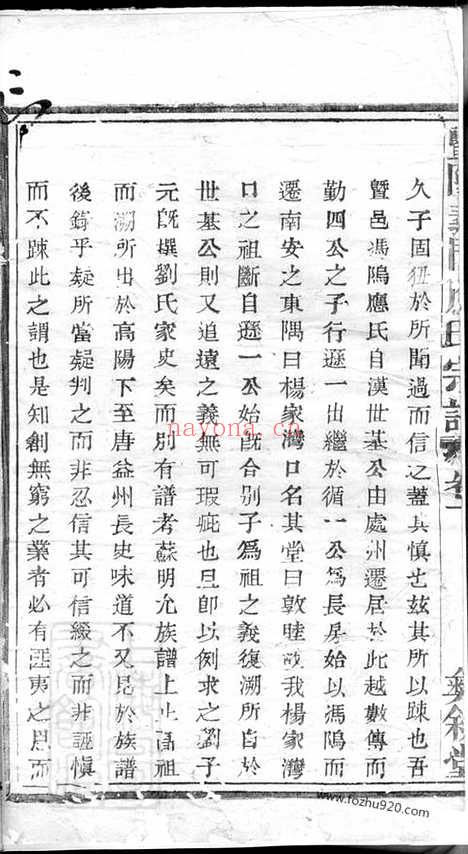 久子固狃於所聞過而信之蓋其慎也茲其所以踈也吾
暨邑馮隖應氏自漢世基公由處州遷居於此越數傳而
勤四公之子行遜一出繼於循一公為長房始以馮隖而
遷南安之東隅曰楊家灣口名其堂曰敦睦故我楊家灣
口之祖斷自遜一公始旣合別子爲祖之義復溯所自於
世基公則又追遠之義無可瑕疵也且卽以例求之劉子
元旣撰劉氏家史矣而別有譜考蘇明允族譜上止高祖
而溯所出於高陽下至唐益州長史味道不又見於族譜
後錄乎疑所當疑判之而非忍信其可信綴之而非誣慎
而不踈此之謂也是知創無窮之業者必有匪夷之思而
暨陽義門應氏宗譜 卷一
敘倫堂
nayona.cn
www.fozhu920.com